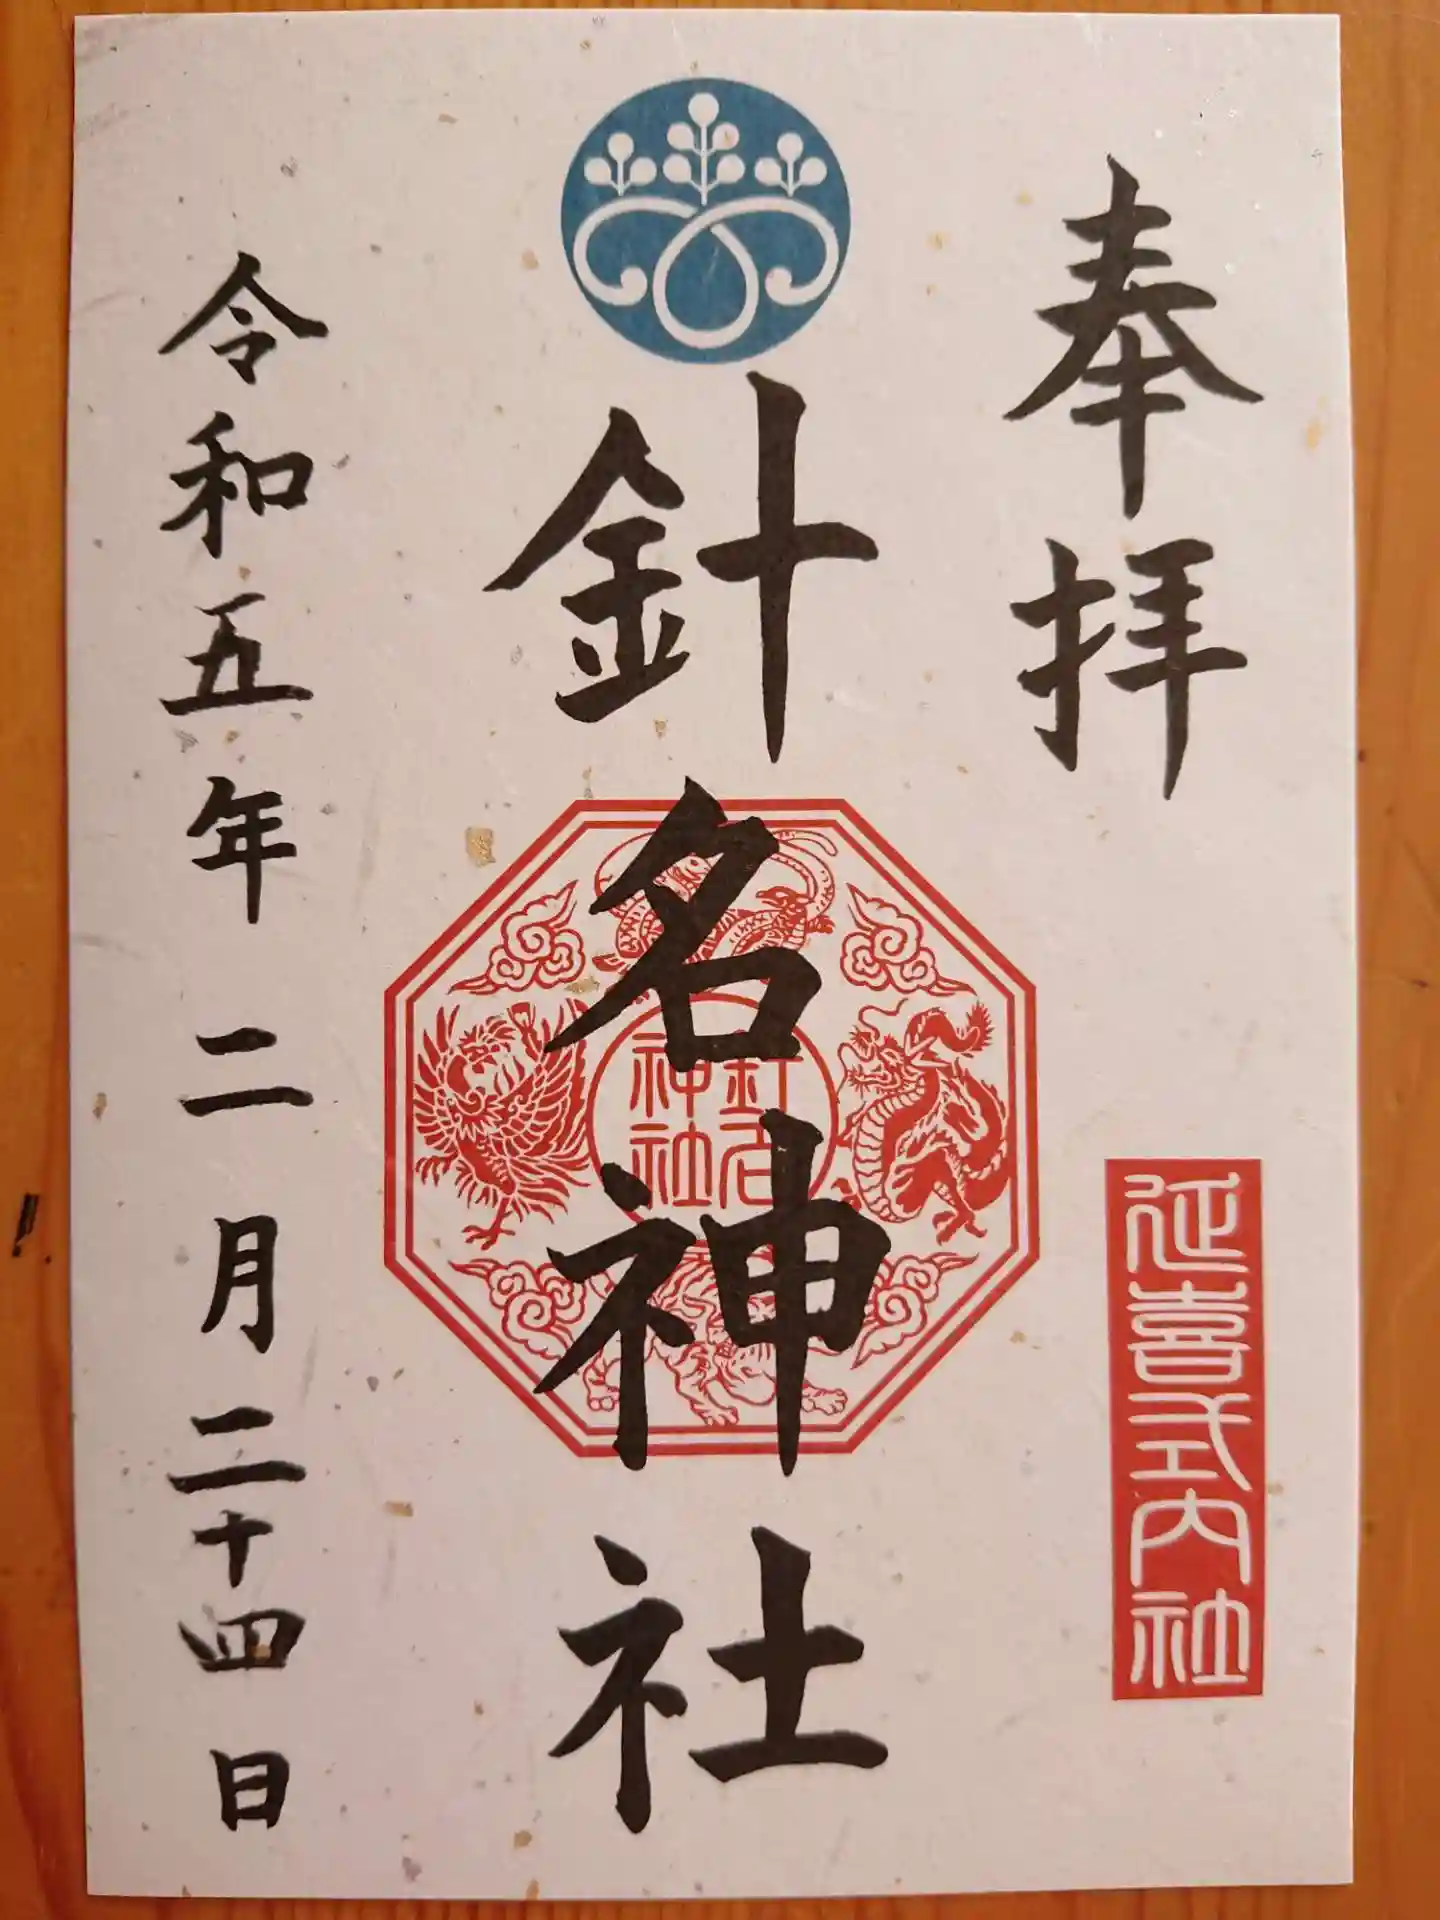 奉拝
延喜式内社
針名神社
針名神社
令和五年二月二十四日